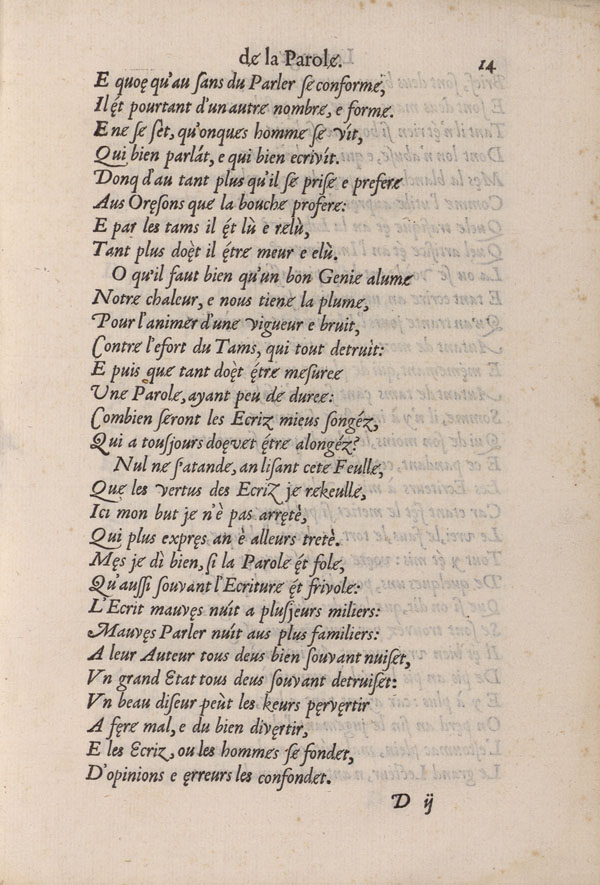 de la Parole.
14
E quoę qu'au ſans du Parler ſe conforme,
Il ę́t pourtant d'un autre nombre, e forme.
E ne ſe ſèt, qu'onques homme ſe vìt,
Qui bien parlát, e qui bien ecrivít.
Donq d'au tant plus qu'il ſe priſe e prefere
Aus Oręſons que la bouche profere:
E par les tams il ę́t lù e relù,
Tant plus doę̀t il ę́tre meur e elù.
O qu'il faut bien qu'un bon Genie alume
Notre chaleur, e nous tiene la plume,
Pour l'animer d'une vigueur e bruit,
Contre l'efort du Tams, qui tout detruit:
E puis que tant doę̀t ę́tre meſuree
Une Parole, ayant peu de duree:
Combien ſeront les Ecriz mieus ſongéz,
Qui a touſjours doęvet ę́tre alongéz?
Nul ne ſ'atande, an liſant cete Feulle,
Que les vertus des Ecriz je rekeulle,
Ici mon but je n'è pas arrętè,
Qui plus expręs an è alleurs tretè.
Męs je dì bien, ſi la Parole ę́t fole,
Qu'auſſi ſouvant l'Ecriture ę́t frivole:
L'Ecrit mauvęs nuìt a pluſjeurs miliers:
Mauvęs Parler nuìt aus plus familiers:
A leur Auteur tous deus bien ſouvant nuiſet,
Vn grand Etat tous deus ſouvant detruiſet:
Vn beau diſeur peùt les keurs pęrvęrtir
A fęre mal, e du bien divęrtir,
E les Ecriz, ou les hommes ſe fondet,
D'opinions e ęrreurs les confondet.
D ij